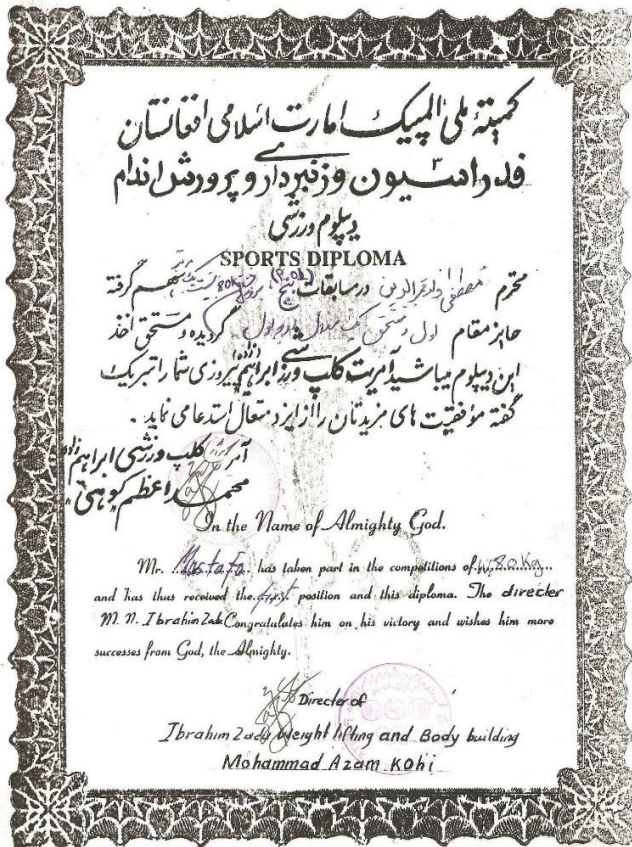 کمیتهٔ ملی المپیک امارت اسلامی افغانستان
فدراسیون وزنبرداری و پرورش اندام
دیپلوم ورزشی
SPORTS DIPLOMA
محترم مصطفی ولد قمرالدین در مسابقات سهم گرفته
حایز مقام اول و مستحق یک مدال اول گردیده و مستحق اخذ
این دیپلوم میباشید آمریت کلپ ورزشی ابراهیم زاده پیروزی شما را تبریک
گفته مؤفقیت های مزید تان را از ایزد متعال استدعا می نماید .
آمر کلپ ورزشی ابراهیم زاده
محمد اعظم "کوهی"
In the Name of Almighty God.
Mr. Mustafa has taken part in the competitions of W.80.Kg
and has thus received the first position and this diploma. The directer
M. N. Ibrahim Zada Congratulates him on his victory and wishes him more
successes from God, the Almighty.
Directer of
Ibrahim Zada weight lifting and Body building
Mohammad Azam KOhi